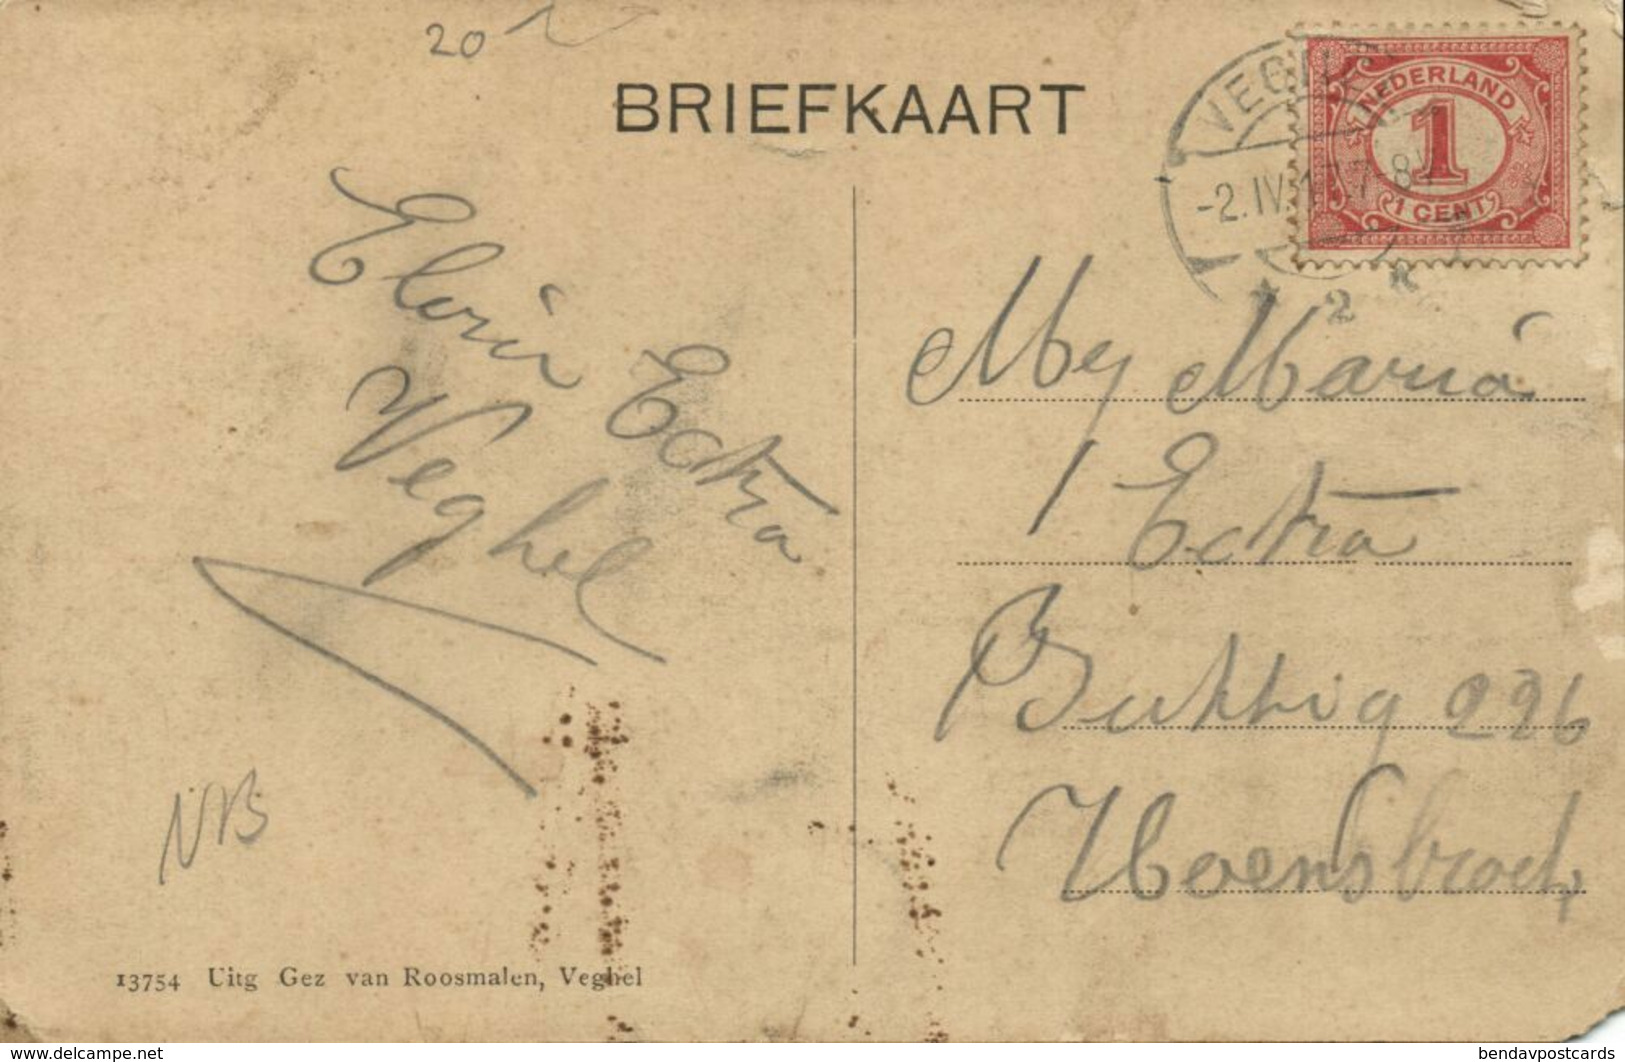 20
BRIEFKAART
VEGHEL
-2.IV.1 7-8V
2
NEDERLAND
1
1 CENT
Ectra
Veghel
Mej Maria
Ectra
226
Hoensbroek
NB
13754 Uitg Gez van Roosmalen, Veghel
www.delcampe.net
bendavpostcards